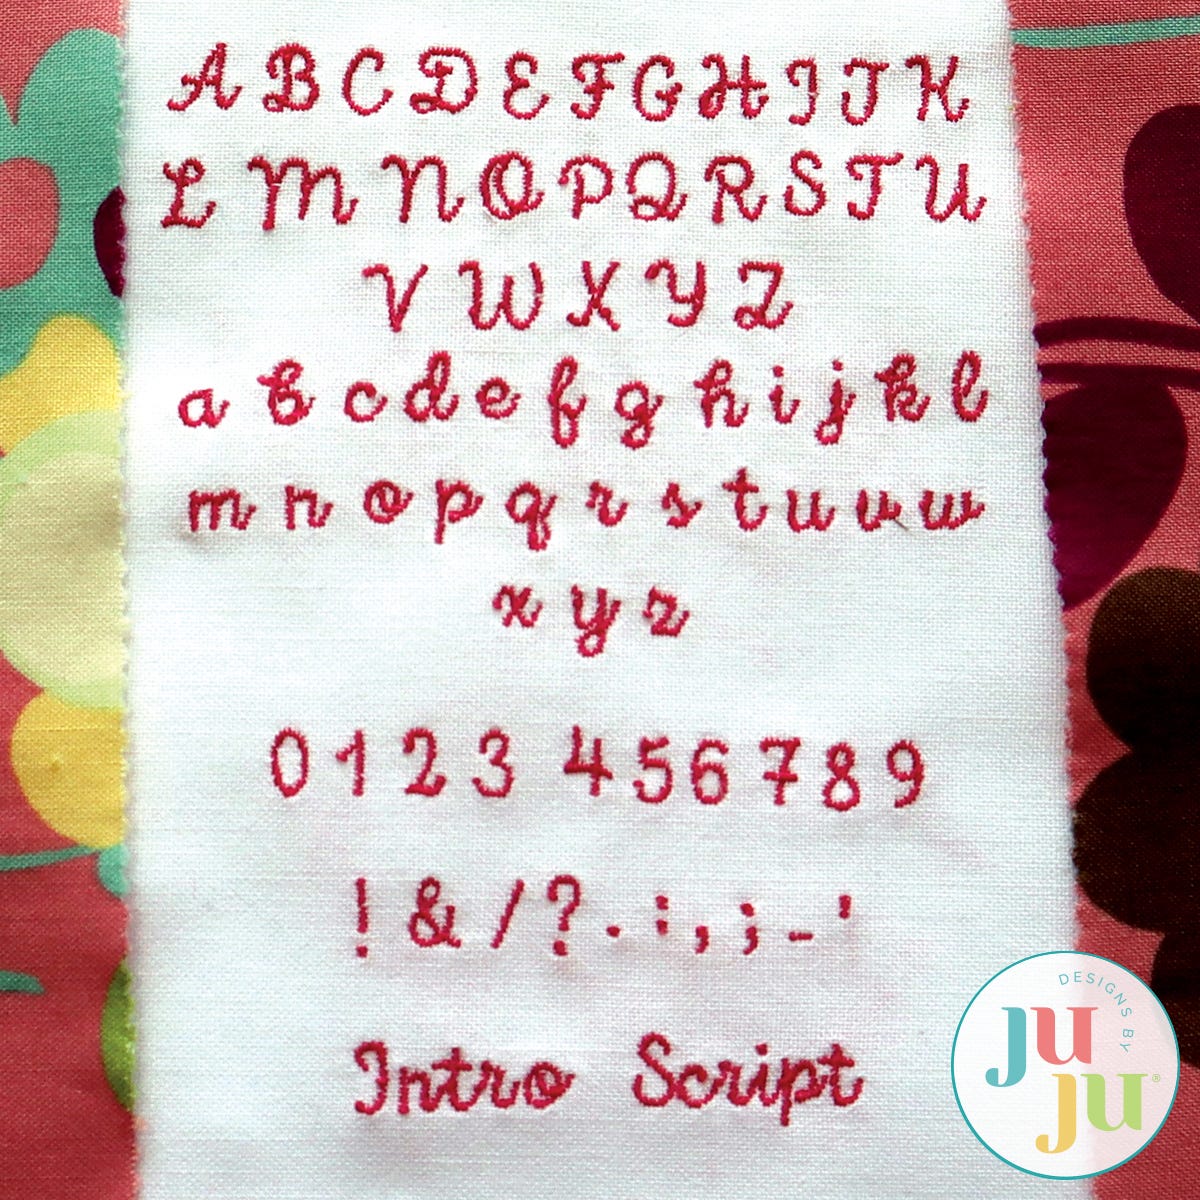 A B C D E F G H I J K
L M N O P Q R S T U
V W X Y Z
a b c d e f g h i j k l
m n o p q r s t u v w
x y z
0 1 2 3 4 5 6 7 8 9
! & / ? . : , ; - '
Intro Script
DESIGNS BY
JU
JU®